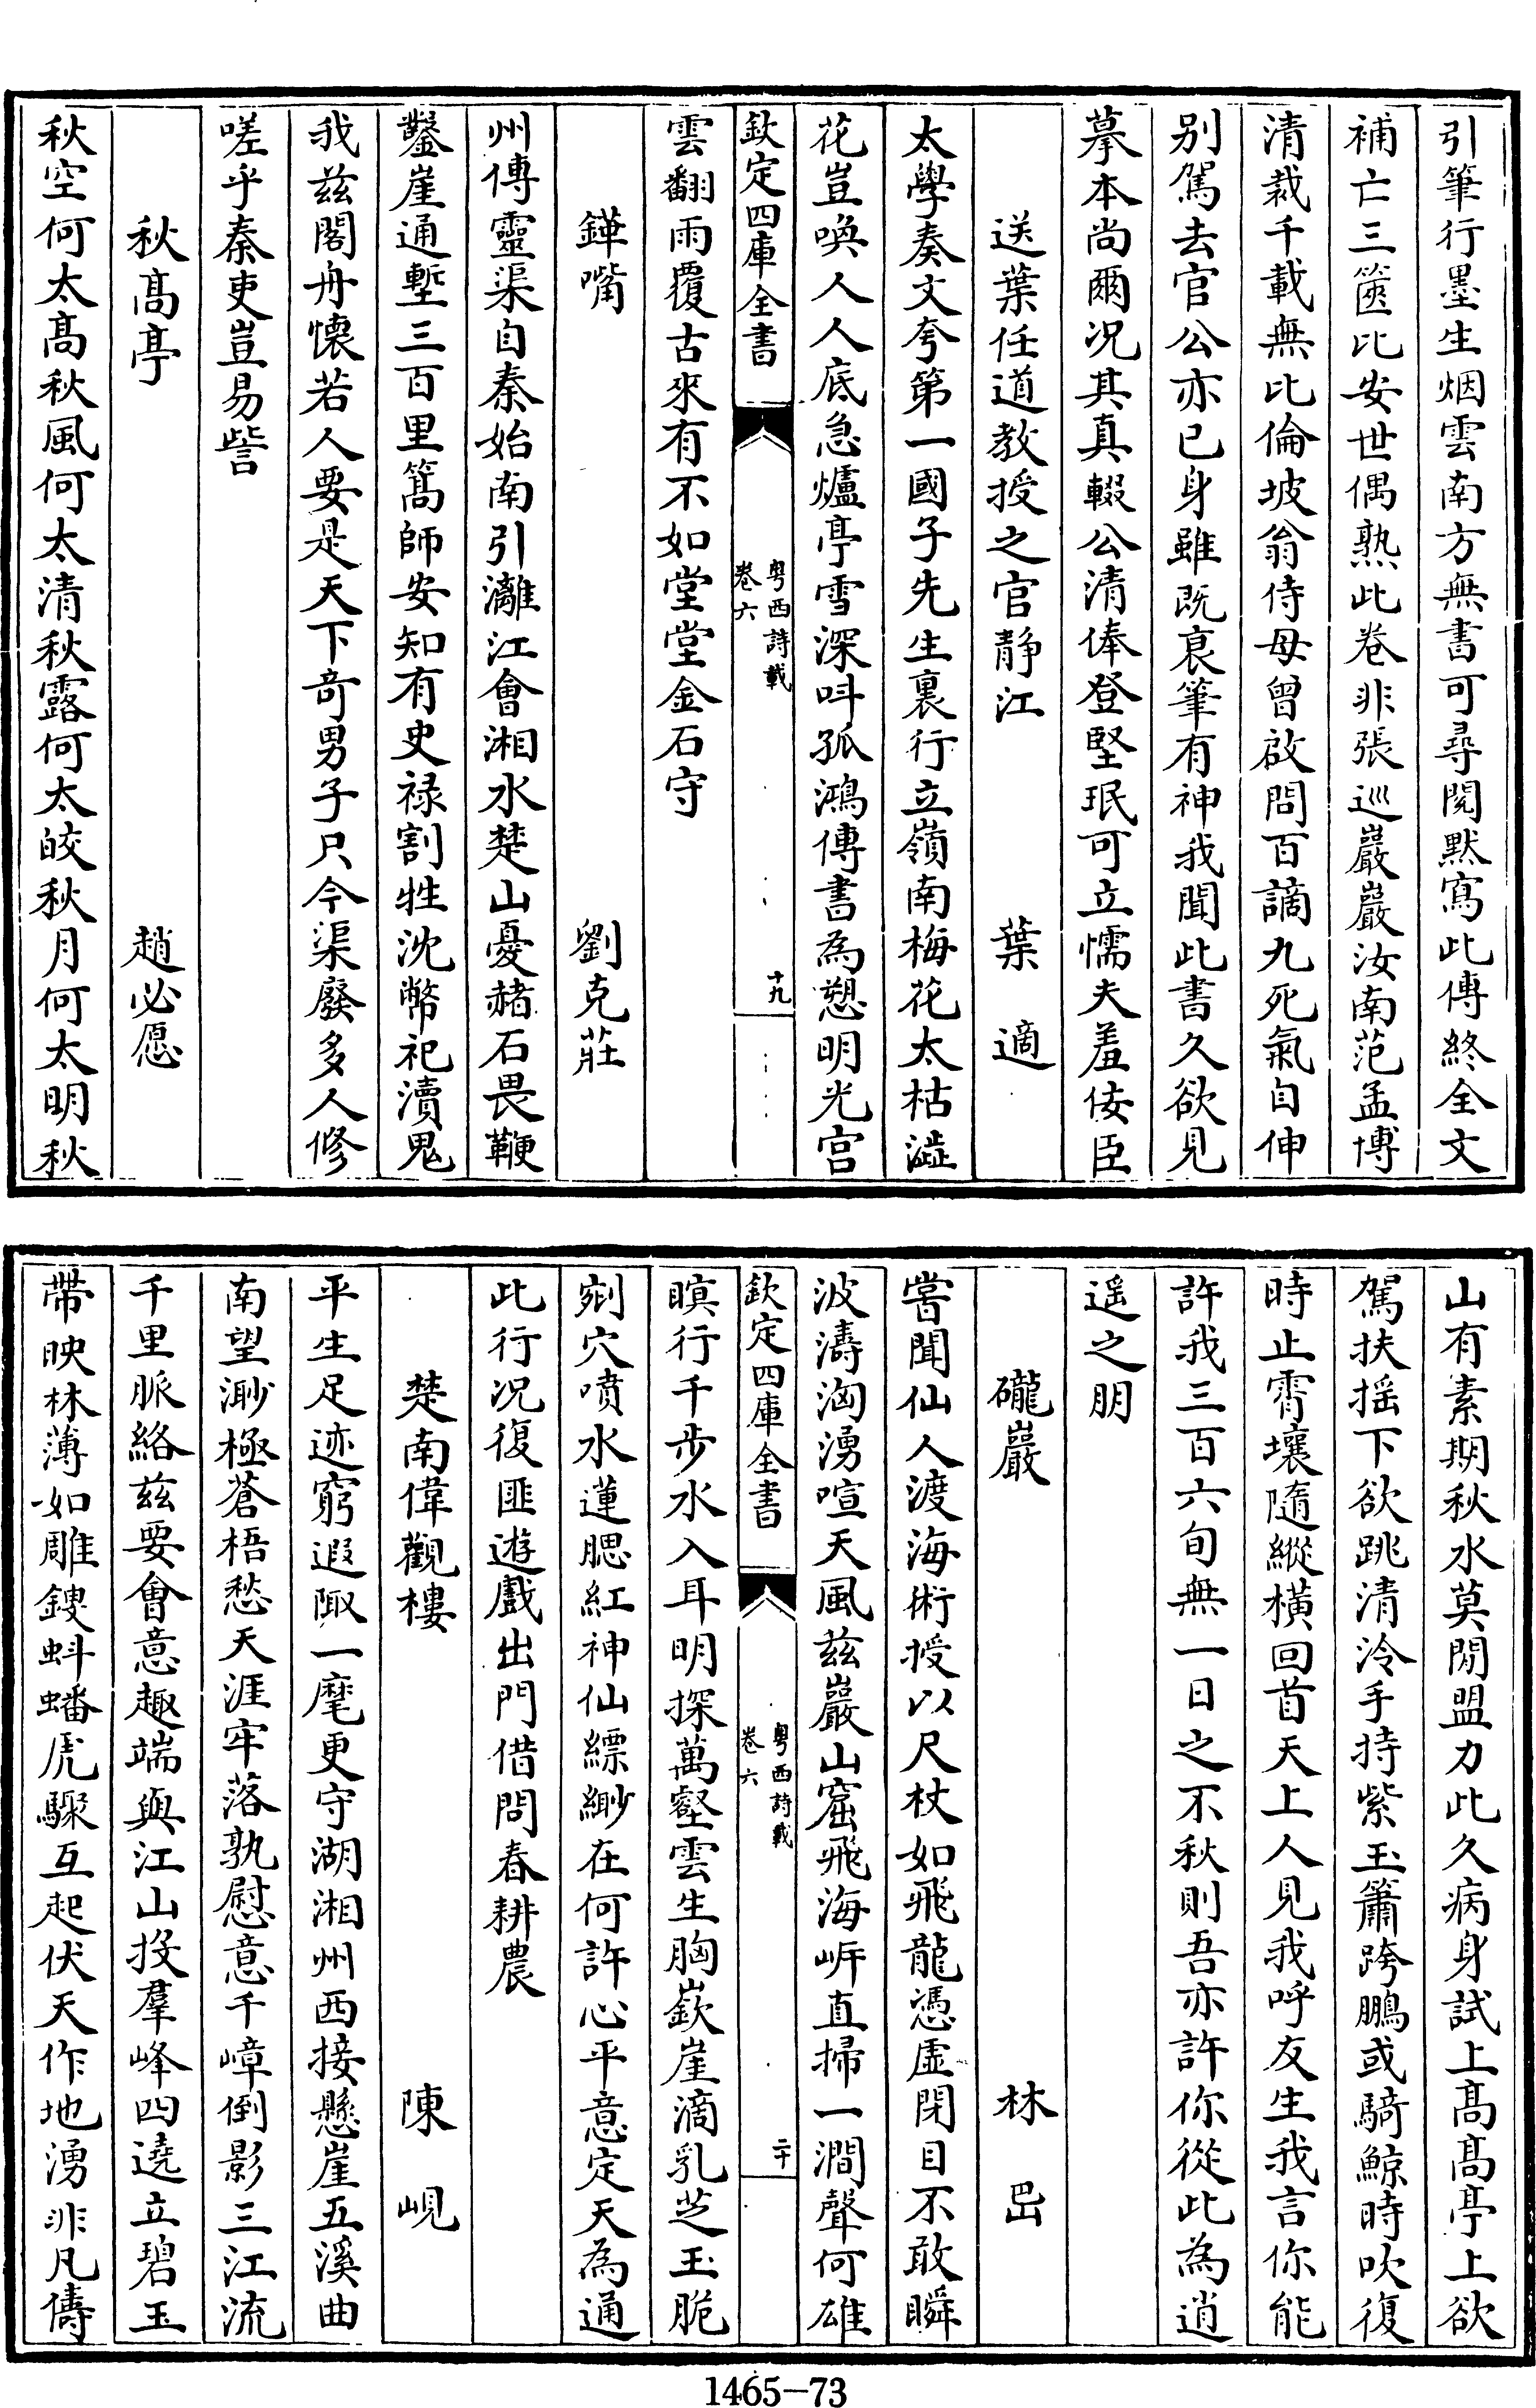 引筆行墨生烟雲南方無書可尋閱黙寫此傳終全文
補亡三篋比安世偶熟此卷非張巡巖巖汝南范孟博
清裁千載無比倫坡翁侍母曾啟問百謫九死氣自伸
别駕去官公亦已身雖既哀筆有神我聞此書久欲見
摹本尚爾况其真輟公清俸登堅珉可立懦夫羞佞臣
送葉任道教授之官静江　葉適
太學奏文夸第一國子先生裏行立嶺南梅花太枯澁
花豈喚人人底急爐亭雪深呌孤鴻傳書為愬明光宫
欽定四庫全書　粤西詩載卷六　十九
雲翻雨覆古來有不如堂堂金石守
鏵嘴　劉克莊
州傳靈渠自秦始南引灕江會湘水楚山憂赭石畏鞭
鑿崖通塹三百里篙師安知有史禄割牲沈幣祀瀆鬼
我兹閣舟懷若人要是天下竒男子只今渠廢多人修
嗟乎秦吏豈易訾
秋髙亭　趙必愿
秋空何太髙秋風何太清秋露何太皎秋月何太明秋
山有素期秋水莫閒盟力此久病身試上髙髙亭上欲
駕扶摇下欲跳清泠手持紫玉簫跨鵬或騎鯨時吹復
時止霄壤隨縱横回首天上人見我呼友生我言你能
許我三百六旬無一日之不秋則吾亦許你從此為逍
遥之朋
礲巖　林岊
嘗聞仙人渡海術授以尺杖如飛龍憑虚閉目不敢瞬
波濤洶湧喧天風兹巖山窟飛海㟁直掃一澗聲何雄
欽定四庫全書　粤西詩載卷六　二十
瞑行千步水入耳明探萬壑雲生胸嶔崖滴乳芝玉脆
剜穴噴水蓮腮紅神仙縹緲在何許心平意定天為通
此行况復匪遊戲出門借問春耕農
楚南偉觀樓　陳峴
平生足迹窮遐陬一麾更守湖湘州西接懸崖五溪曲
南望渺極蒼梧愁天涯牢落孰慰意千嶂倒影三江流
千里脈絡兹要會意趣端與江山投羣峰四遶立碧玉
帶映林薄如雕鎪蚪蟠虎驟互起伏天作地湧非凡儔
1465—73